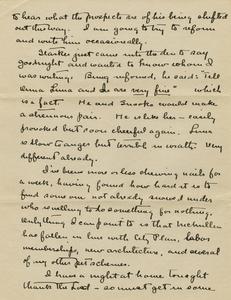 to hear what the prospects are of his being shifted
out this way. I am going to try to reform
and write him occasionally.
Starkie just came into the den to say
goodnight and wanted to know whom I
was writing. Being informed, he said: "Tell
Anna Lima and I are very fine" which
is a fact. He and Snooks would make
a strenuous pair. He is like her — easily
provoked but soon cheerful again. Lima
is slow to anger but terrible in wrath. Very
different already.
I've been more or less chewing nails for
a week, having found how hard it is to
find some one not already snowed under
who is willing to do something for nothing.
Only thing I can point to is that McMullen
has fallen in line with City Plan, Labor
memberships, new architecture, and several
of my other pet schemes.
I have a night at home tonight
thanks the Lord — so must get in some